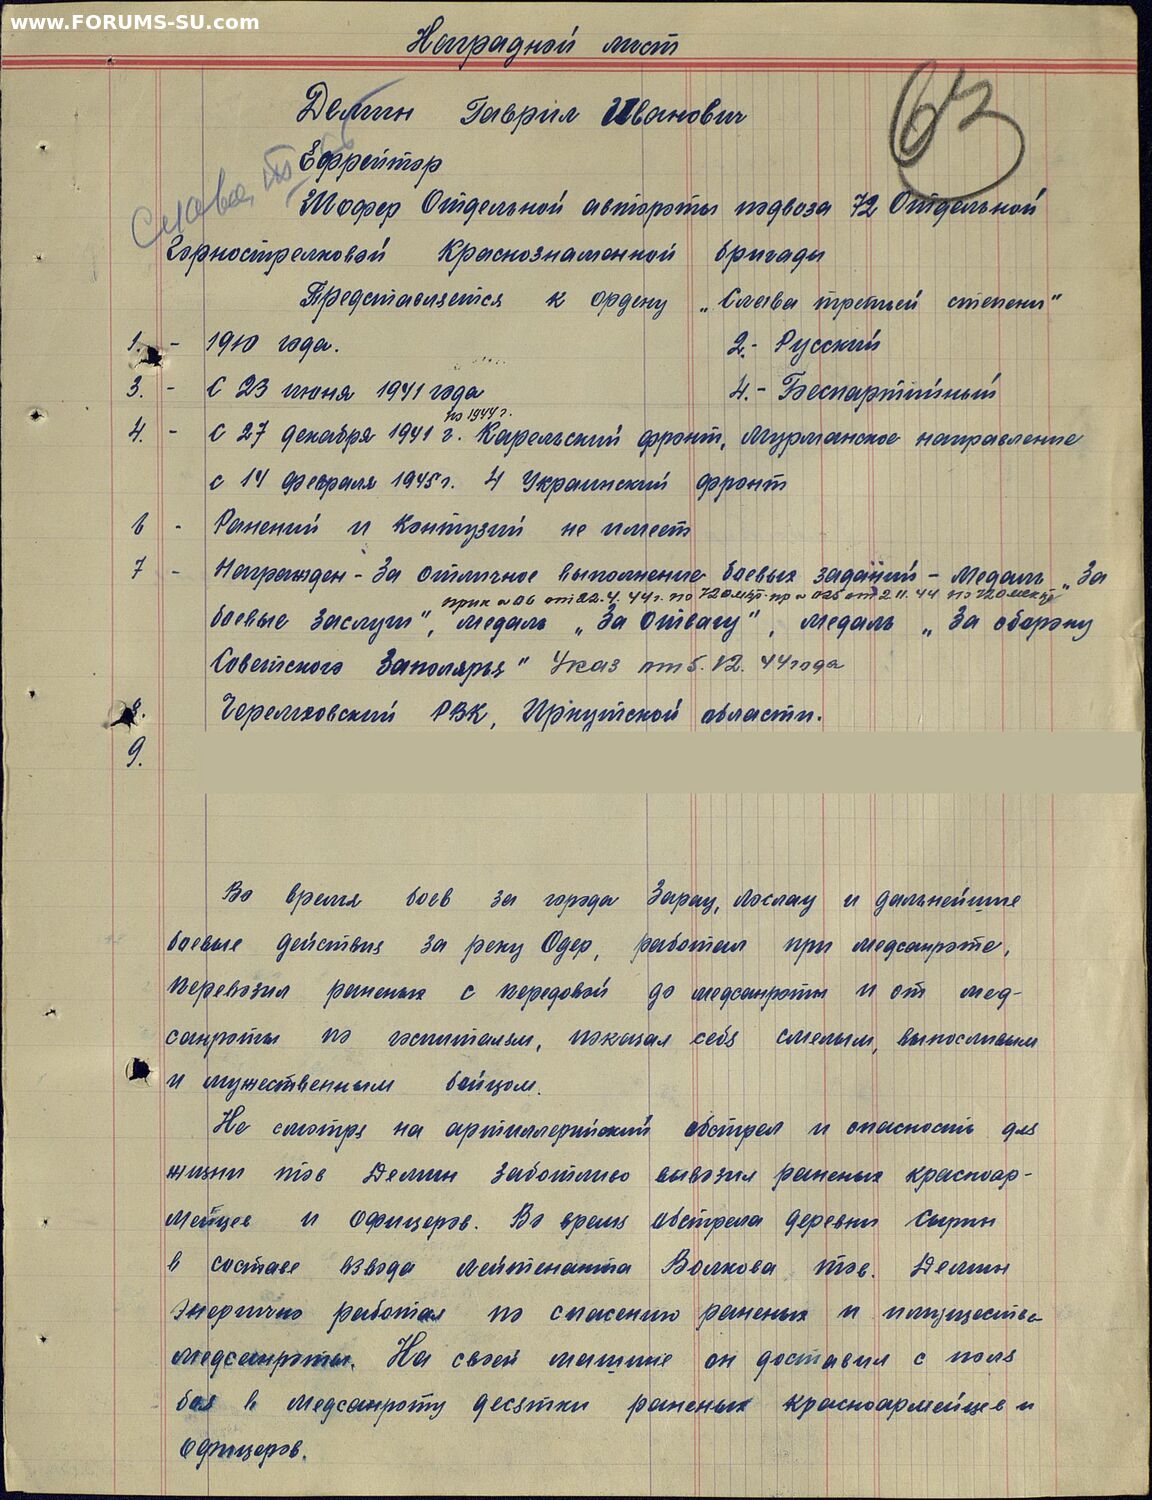 www.FORUMS-SU.com
Наградной лист
63
Демин Гаврил Иванович
Ефрейтор
Слава
Шофер Отдельной автороты подвоза 72 Отдельной
Горнострелковой Краснознаменной бригады
Представляется к ордену „Слава третьей степени"
1. - 1910 года. 2.- Русский
3. - С 23 июня 1941 года 4.- Беспартийный
по 1944 г.
4. - С 27 декабря 1941 г. Карельский фронт, Мурманское направление
с 14 февраля 1945 г. 4 Украинский фронт
6 - Ранений и контузий не имеет
7 - Награжден - За отличное выполнение боевых заданий - Медаль „За
прик № 06 от 22.4.44г. по 72 омсбр пр № 026 от 2 11.44 по 72 омсбр
боевые заслуги", медаль „За отвагу", медаль „За оборону
Советского Заполярья" Указ от 5.12.44 года
8. Черемховский РВК, Иркутской области.
9.
Во время боев за города Зарау, Лослау и дальнейшие
боевые действия за реку Одер, работал при медсанроте,
перевозил раненых с передовой до медсанроты и от мед-
санроты по госпиталям, показал себя смелым, выносливым
и мужественным бойцом.
Не смотря на артиллерийский обстрел и опасность для
жизни тов Демин заботливо вывозил раненых красноар-
мейцев и офицеров. Во время обстрела деревни Сырин
в составе взвода лейтенанта Волкова тов. Демин
энергично работал по спасению раненых и имущества
медсанроты. На своей машине он доставил с поля
боя в медсанроту десятки раненых красноармейцев и
офицеров.